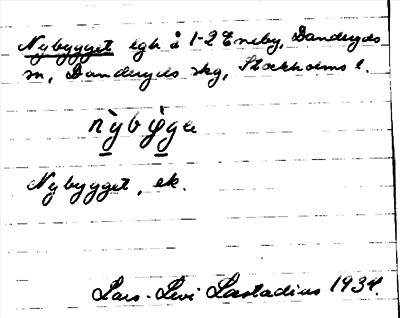 Nybygget lgh å 1-2 Eneby, Danderyds
sn, Danderyds skg, Stockholms l.
nỳbỳge
Nybygget, ek.
Lars-Levi Læstadius 1934.